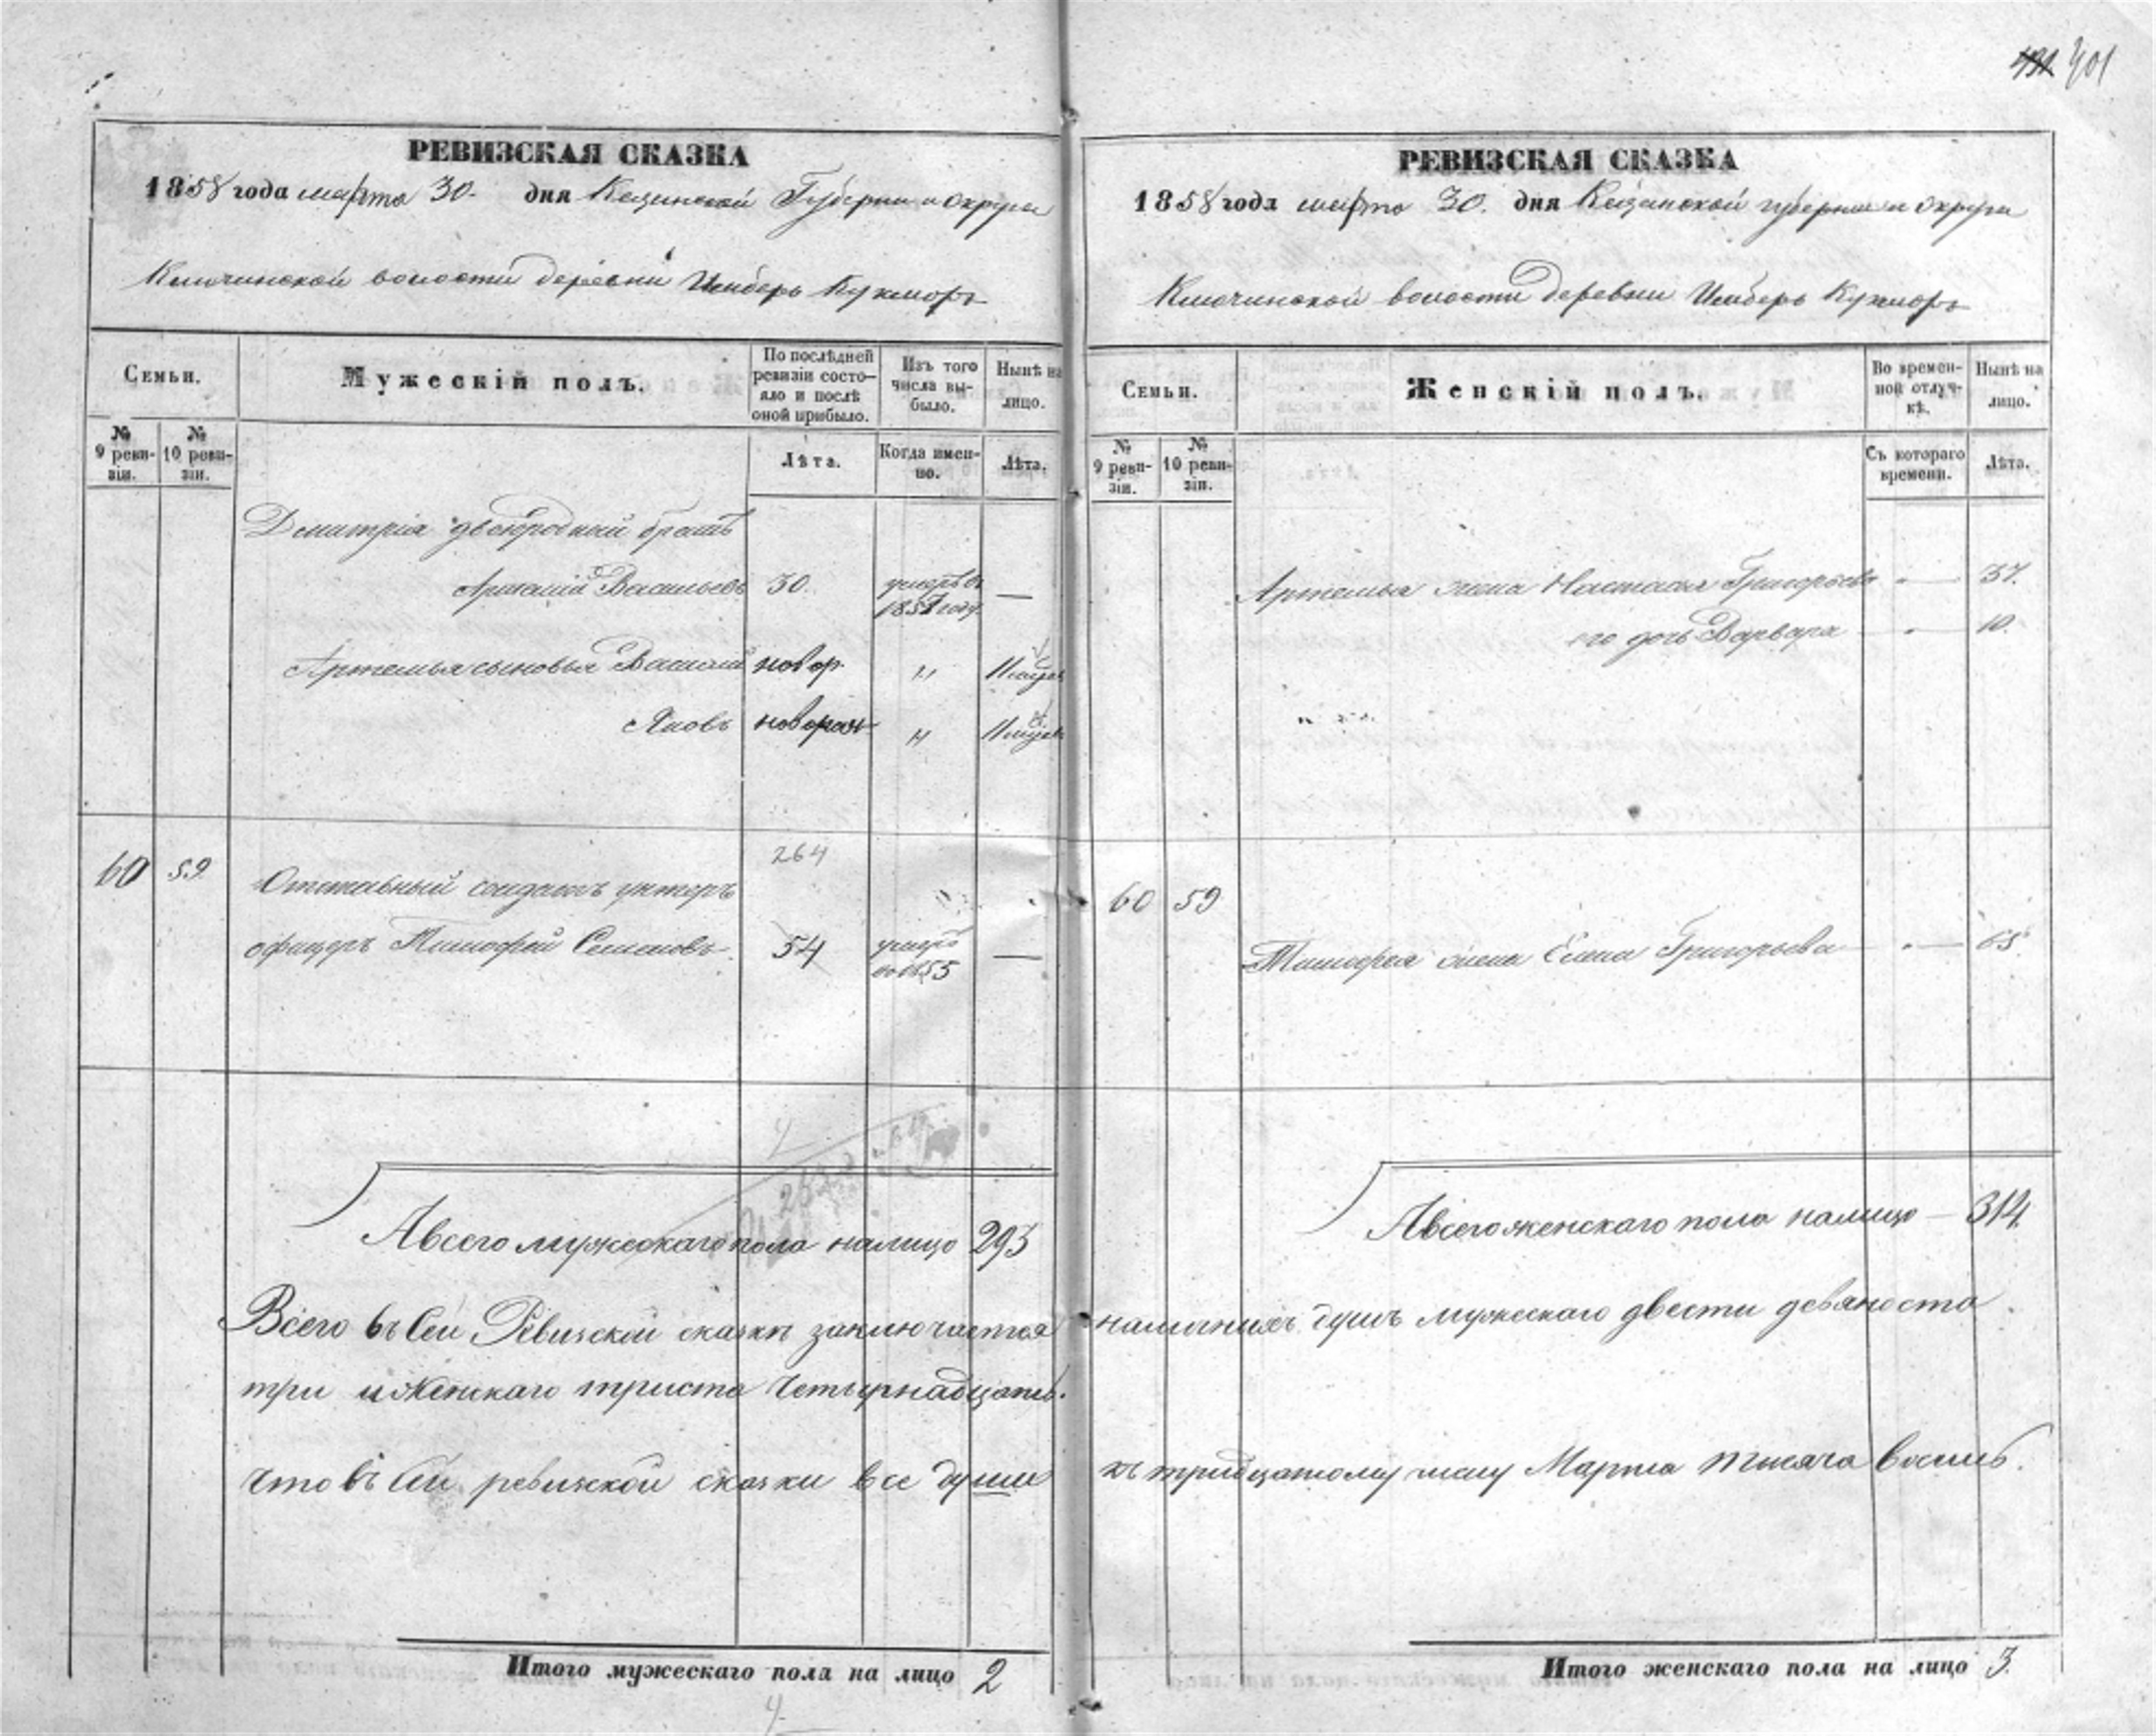 401
РЕВИЗСКАЯ СКАЗКА
1858 года марта 30. дня Казанской Губернии и округа
Ключинской волости деревни Имберь Кукморъ
Семьи.
Мужескій полъ.
По послѣдней ревизіи состо-
яло и послѣ
оной прибыло.
Изъ того
числа вы-
было.
Нынѣ на
лицо.
№
9 реви-
зіи.
№
10 реви-
зіи.
Лѣта.
Когда имен-
но.
Лѣта.
Дмитрія двоюродный братъ
Васильевъ 30. умеръ въ
1857 году —
Артемья сыновья Василій новор. "
Яковъ новорож "
264
60 59 Отставный солдатъ унтеръ
офицеръ Тимофей Семеновъ. 54 умеръ
въ 1855 —
А всего мужескаго пола налицо 293
Всего въ Сей Ревизской сказкѣ заключается
три и Женскаго триста Четырнадцать.
Что въ Сей ревизской сказки все души
Итого мужескаго пола на лицо 2
РЕВИЗСКАЯ СКАЗКА
1858 года марта 30. дня Казанской губернии и округа
Ключинской волости деревни Имберь Кукморъ
Семьи.
Женскій полъ.
Во времен-
ной отлуч-
кѣ.
Нынѣ на
лицо.
№
9 реви-
зіи.
№
10 реви-
зіи.
Съ котораго
времени.
Лѣта.
Артемья жена Настасья Григорьева " — 37.
его дочь Варвара — " — 10.
60 59
Тимофея жена Елена Григорьева — " — 65.
А всего женскаго пола налицо — 314
наличныхъ душъ мужескаго двести девяносто
къ тридцатому числу Марта тысяча восемь.
Итого женскаго пола на лицо 3.